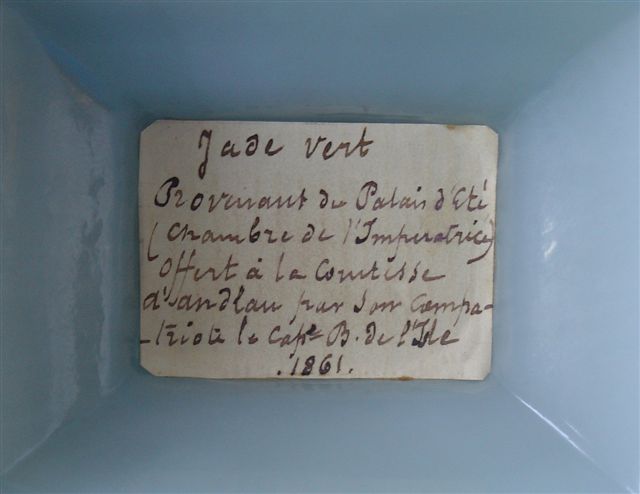 Jade vert
Provenant du Palais d'Eté
(Chambre de l'Imperatrice)
Offert à la Comtesse
d'andlau par son Compa-
-triote le Capne B. de l'Isle
.1861.